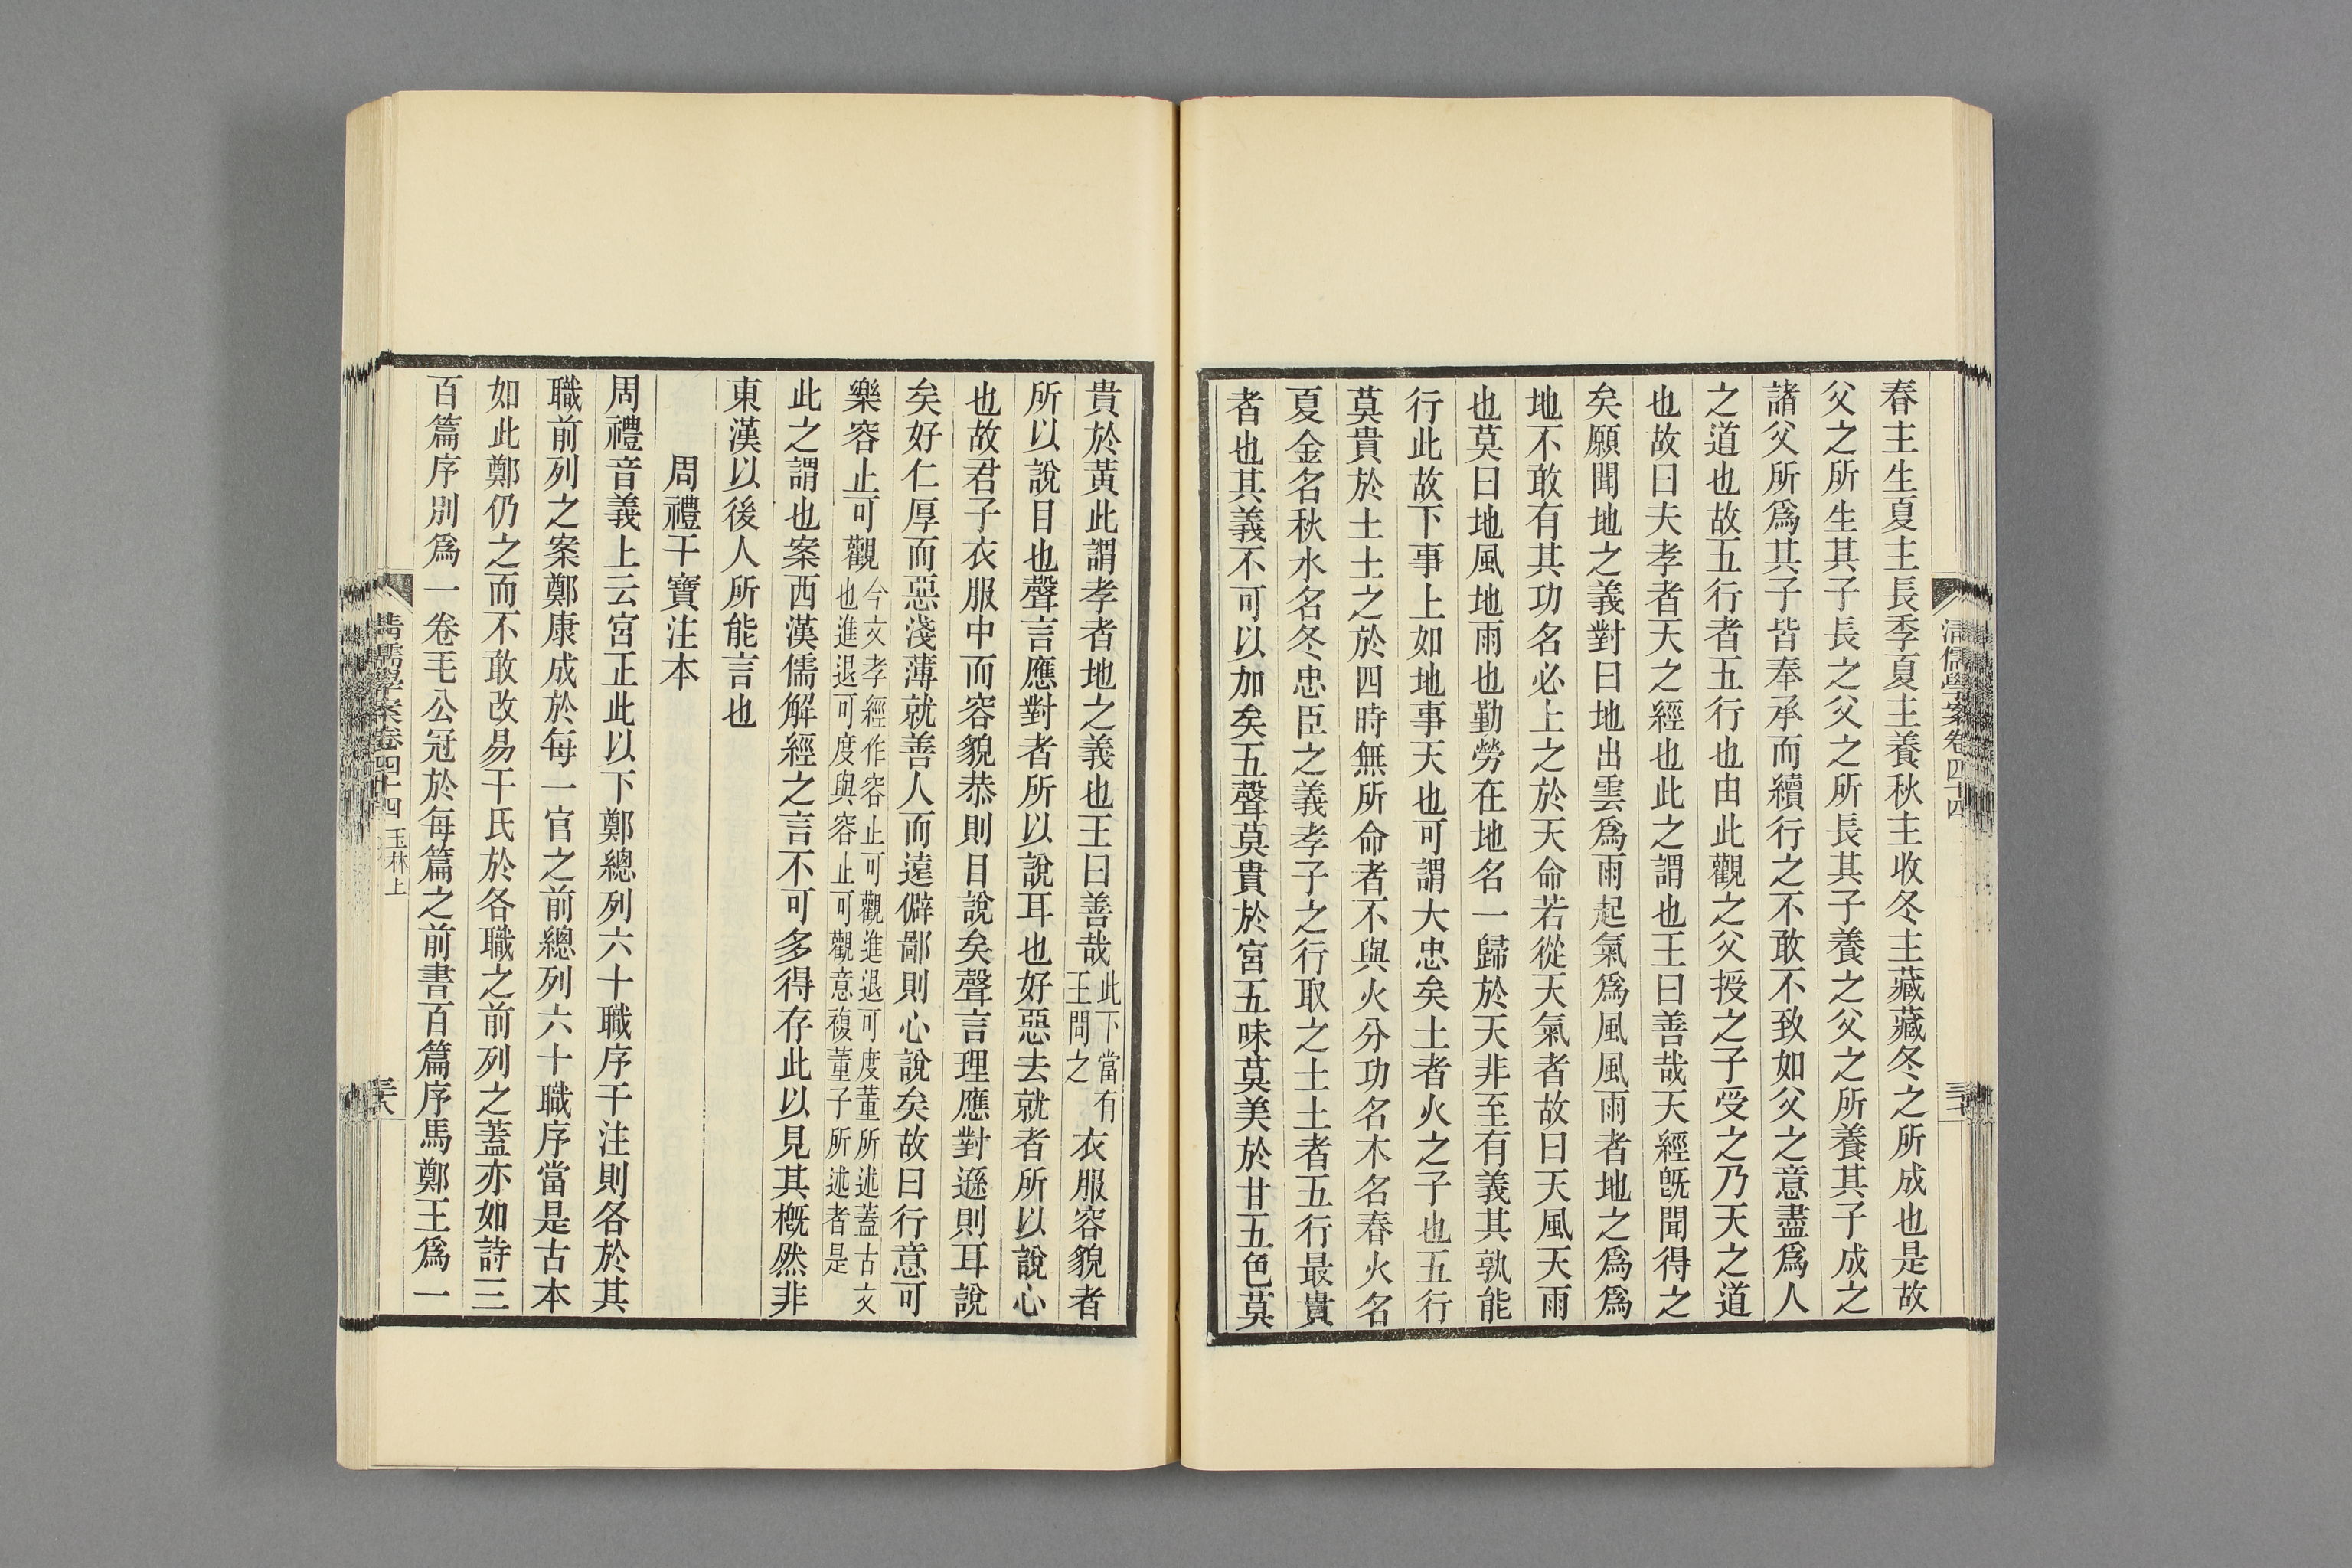 清儒學案卷四十四
三十七
春主生夏主長季夏主養秋主收冬主藏藏冬之所成也是故
父之所生其子長之父之所長其子養之父之所養其子成之
諸父所爲其子皆奉承而續行之不敢不致如父之意盡爲人
之道也故五行者五行也由此觀之父授之子受之乃天之道
也故曰夫孝者天之經也此之謂也王曰善哉天經既聞得之
矣願聞地之義對曰地出雲爲雨起氣爲風風雨者地之爲爲
地不敢有其功名必上之於天命若從天氣者故曰天風天雨
也莫曰地風地雨也勤勞在地名一歸於天非至有義其孰能
行此故下事上如地事天也可謂大忠矣土者火之子也五行
莫貴於土土之於四時無所命者不與火分功名木名春火名
夏金名秋水名冬忠臣之義孝子之行取之土土者五行最貴
者也其義不可以加矣五聲莫貴於宮五味莫美於甘五色莫
貴於黃此謂孝者地之義也王曰善哉此下當有王問之衣服容貌者
所以說目也聲言應對者所以說耳也好惡去就者所以說心
也故君子衣服中而容貌恭則目說矣聲言理應對遜則耳說
矣好仁厚而惡淺薄就善人而遠僻鄙則心說矣故曰行意可
樂容止可觀今文孝經作容止可觀進退可度董所述蓋古文也進退可度與容止可觀意複董子所述者是
此之謂也案西漢儒解經之言不可多得存此以見其槪然非
東漢以後人所能言也
周禮干寶注本
周禮音義上云宮正此以下鄭總列六十職序干注則各於其
職前列之案鄭康成於每一官之前總列六十職序當是古本
如此鄭仍之而不敢改易干氏於各職之前列之蓋亦如詩三
百篇序別爲一卷毛公冠於每篇之前書百篇序馬鄭王爲一
清儒學案卷四十四 玉林上
三十八